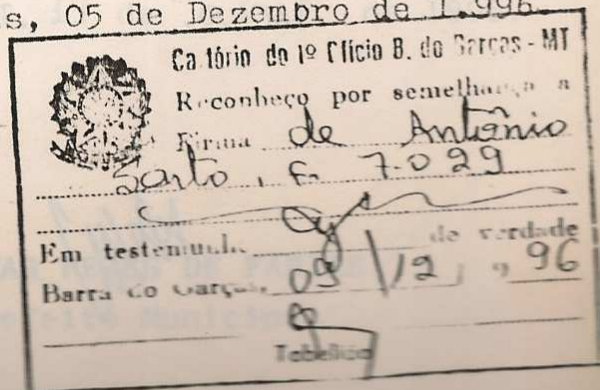 s, 05 de Dezembro de 1.996.
Cartório do 1º Ofício B. do Garças - MT
Reconheço por semelhança a
Firma de Antônio
Sarto, F. 7.029
Em testemunho de verdade
Barra do Garças, 09 / 12 / 96
Tabelião